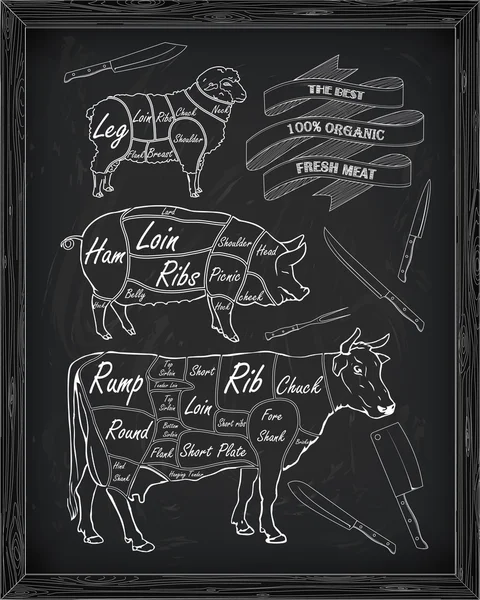 THE BEST
100% ORGANIC
FRESH MEAT
Leg
Loin
Ribs
Chuck
Neck
Shoulder
Flank
Breast
Lard
Ham
Loin
Ribs
Shoulder
Head
Picnic
cheek
Belly
Hock
Hock
Rump
Top
Sirloin
Tender Loin
Short
Loin
Rib
Chuck
Top
Sirloin
Round
Bottom
Sirloin
Short ribs
Fore
Shank
Flank
Short Plate
Hind
Shank
Hanging Tender